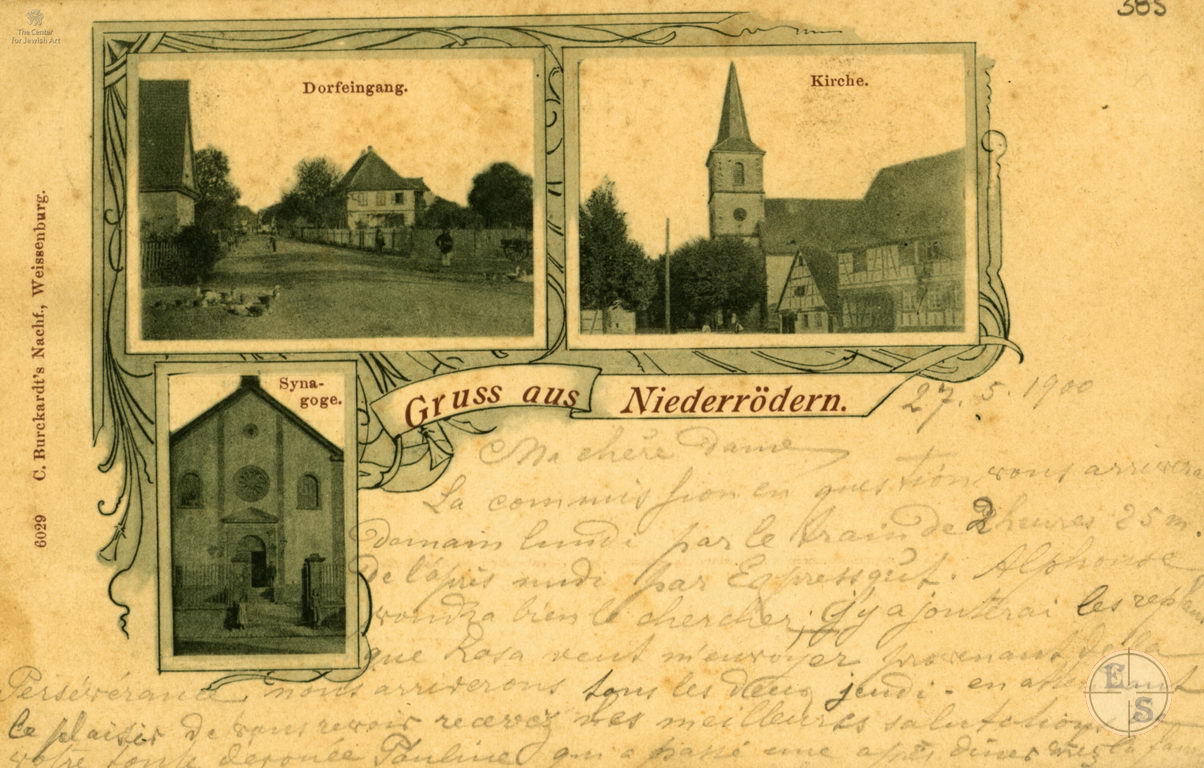 The Center
for Jewish Art
385
Dorfeingang.
Kirche.
Syna-
goge.
Gruss aus Niederrödern.
6029 C. Burckardt's Nachf., Weissenburg.
27. 5. 1900
Ma chère Dame
La commission en question vous arrivera
demain lundi par le train de 2 heures 25 m
de l'après midi par Expressgut. Alphonse
voudra bien le chercher, j'y ajouterai les
que Rosa veut m'envoyer provenant de la
Persévérance nous arriverons tous les deux jeudi - en
le plaisir de vous revoir recevez mes meilleures salutations
votre toute dévouée Pauline qui a passé une après diner la
E
S